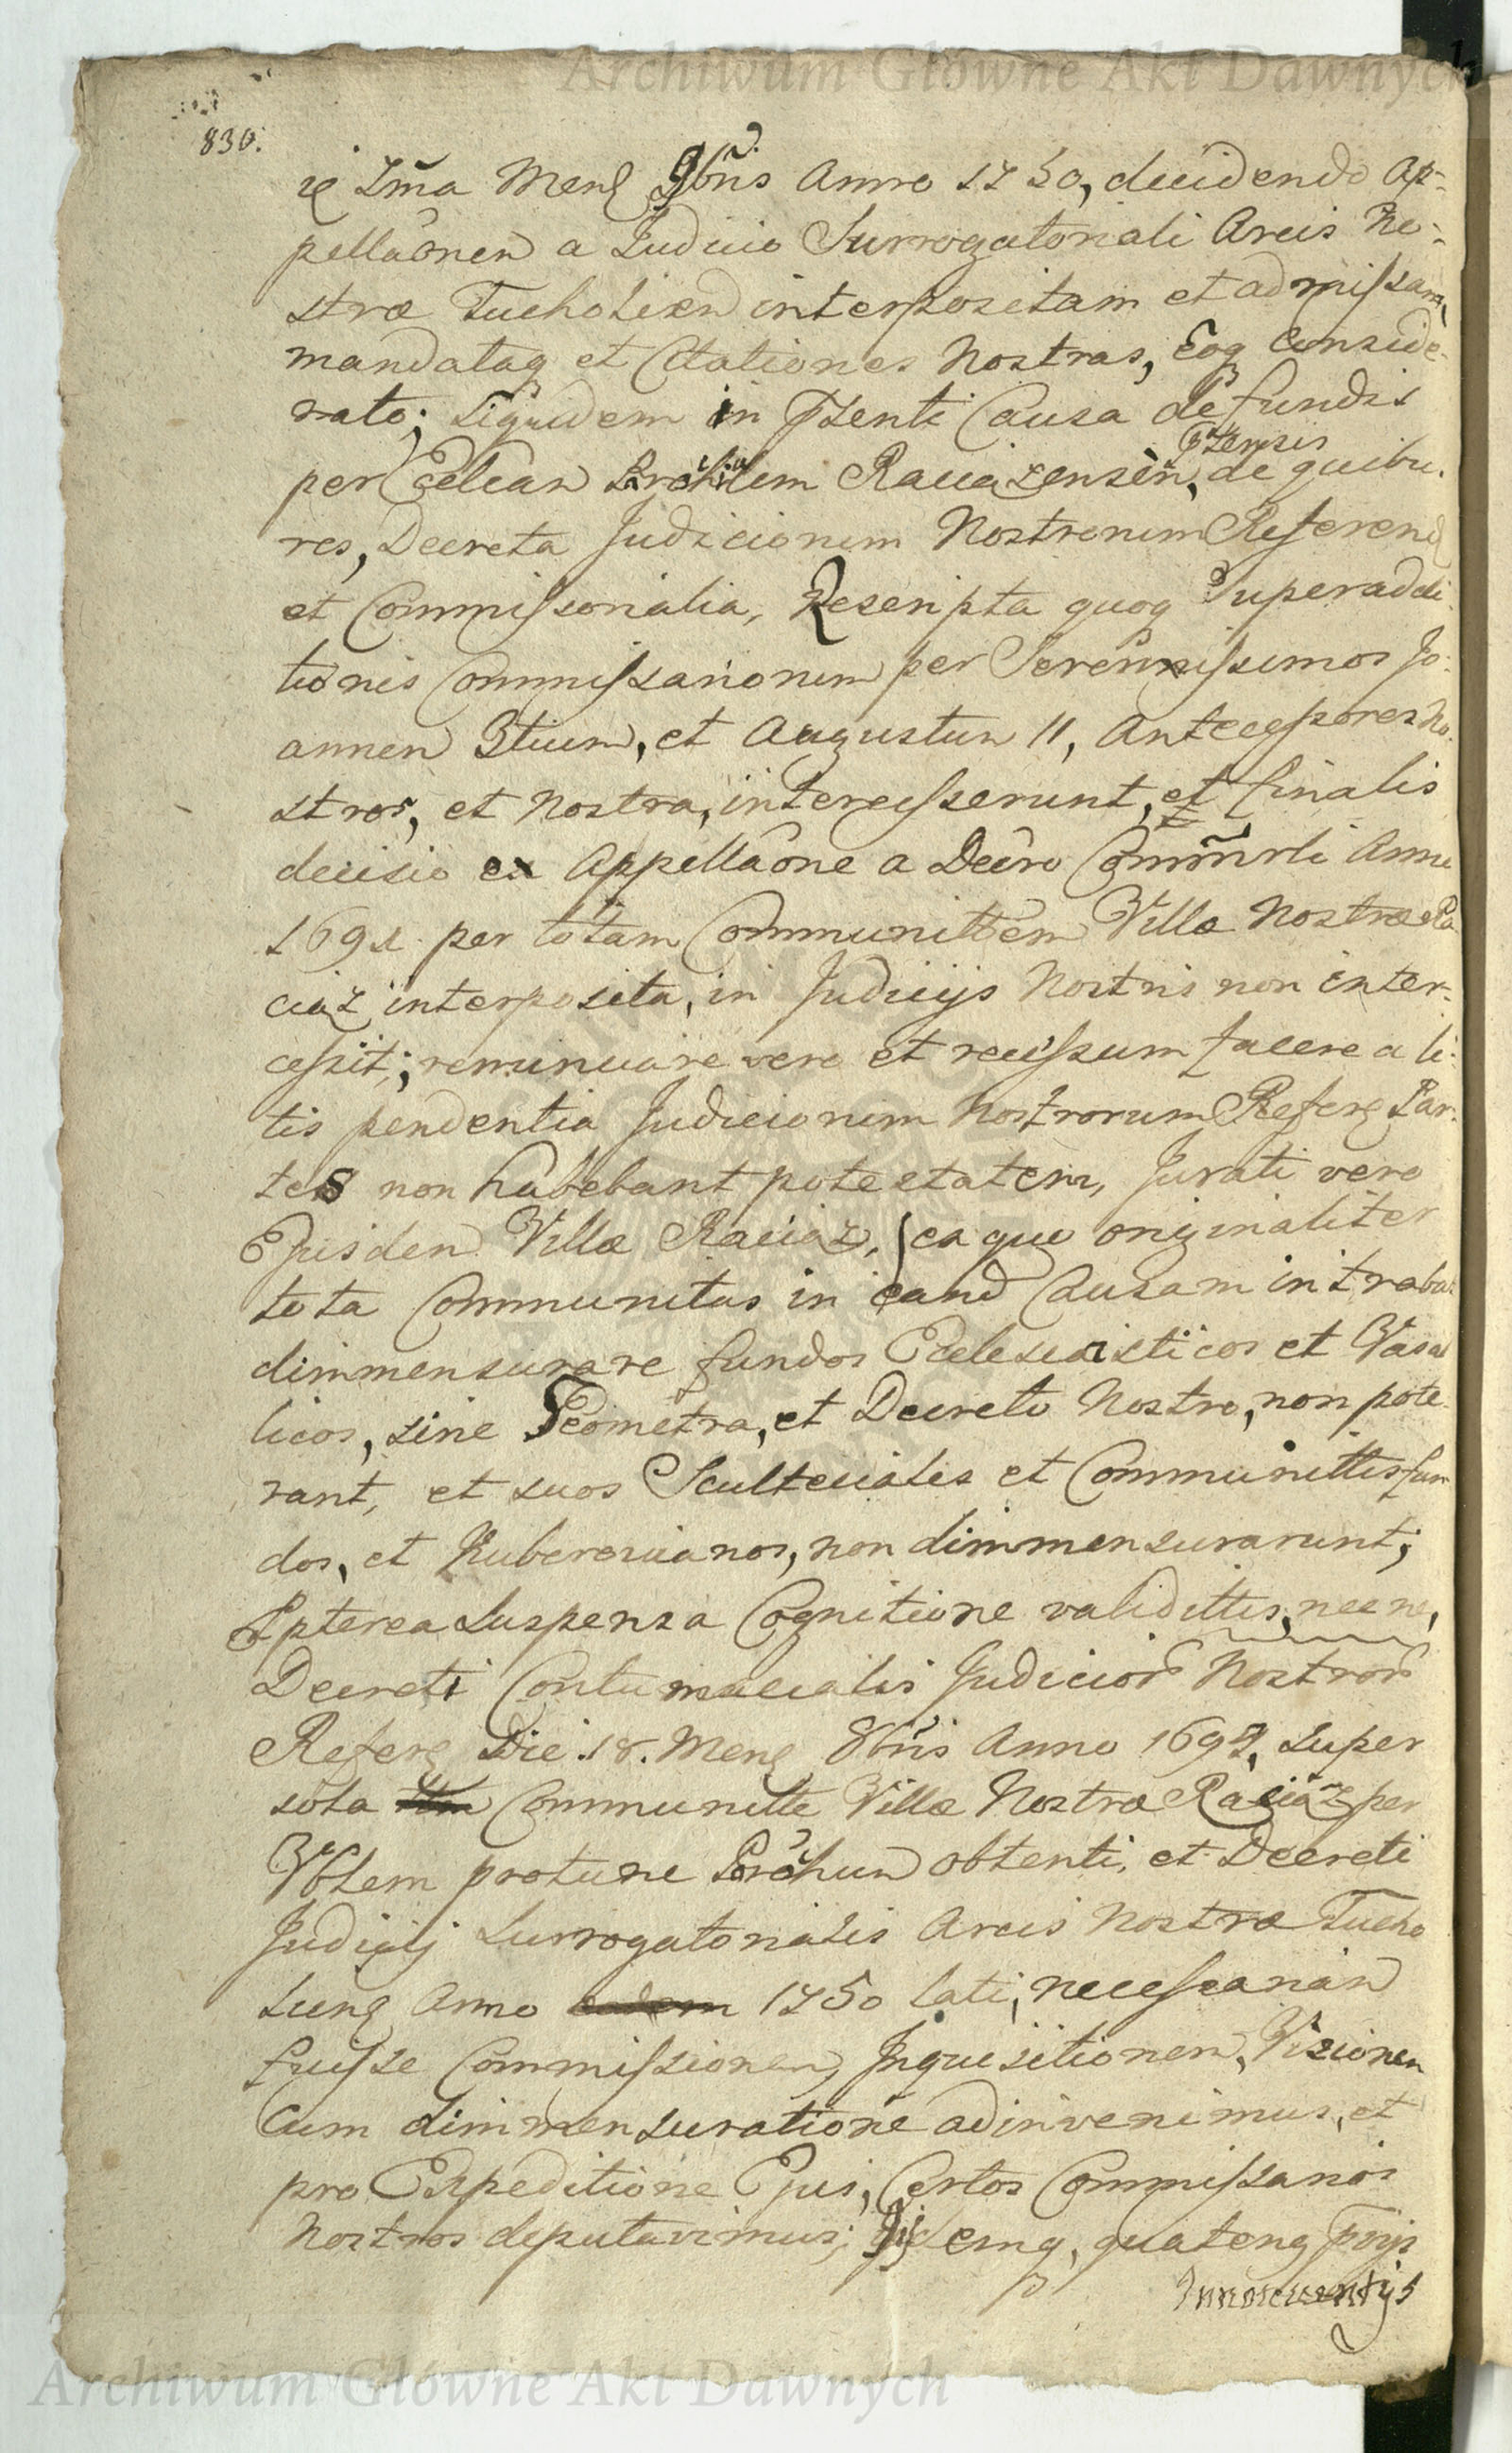 Archiwum Główne Akt Dawnych
830.
ie 2ma Mens 9bris Anno 1750, decidendo Ap-
pellaonem a Judicio Surrogatoriali Arcis No-
stræ Tucholien interpositam et admissam,
mandataq et Citationes Nostras, Eoq Conside-
rato; siquidem in Pzenti Causa de fundis
per Ecclean Parohialem Raciazensem, Pzensis de quibu.
res, Decreta Judiciorum Nostrorum Referend
et Commissorialia, Rescripta quoq Superaddi-
tionis Commissariorum per Serenissimos Jo-
annem 3tium, et Augustum II, Antecessores No-
stros, et Nostra, intercesserunt, et finalis
decisio ex Appellaone a Decro Commrli Anno
1691 per totam Communittem Villæ Nostræ Ra-
ciaz interposita, in Judicijs Nostris non inter-
cessit; renunciare vero et recessum facere a li-
tis pendentia Judiciorum Nostrorum Refere Par-
tes non habebant potestatem, Jurati vero
Ejusdem Villæ Raciaz, ea que originaliter
tota Communitas in eand Causam intrabat
dimmensurare fundos Ecclesiasticos et Vasal
licos, sine Geometra, et Decreto Nostro, non pote-
rant, et suos Scultetiales et Communittis fun
dos, et Huberovianos, non dimmensurarunt;
Ppterea Suspensa Cognitione validittis, nec ne,
Decreti Contumacialis Judicior Nostror
Refere Die 18. Mens 8bris Anno 1697, super
sola Communitte Villæ Nostræ Raciaz per
Vblem protunc Parohum obtenti, et Decreti
Judicij Surrogatorialis Arcis Nostræ Tucho
liens Anno 1750 lati, necessariam
fuisse Commissionem, Inquisitionem, Visionem
Cum dimmensuratione adinvenimus, et
pro Expeditione Ejus, Certos Commissarios
Nostros deputavimus; Ijsdemq, quatenq
Innotescentijs
Archiwum Główne Akt Dawnych